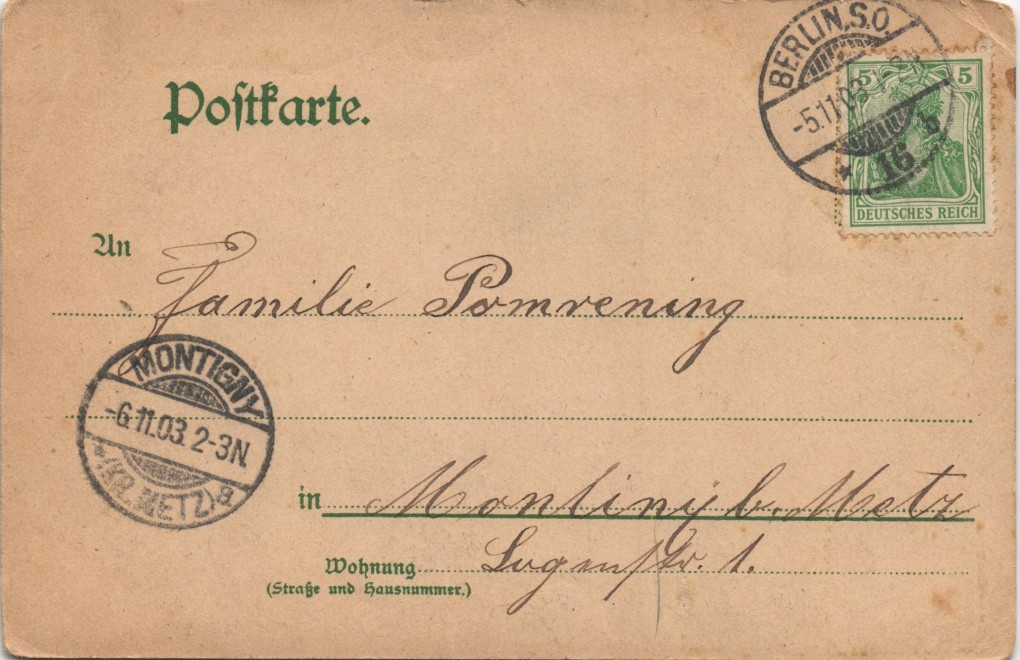 BERLIN.S.O.
-5.11.03.
16 b
5 5
DEUTSCHES REICH
Postkarte.
An
Familie Pomrening
MONTIGNY
-6.11.03. 2-3N.
*(KR. METZ) a
in Montinÿ b. Metz
Wohnung
(Straße und Hausnummer.)